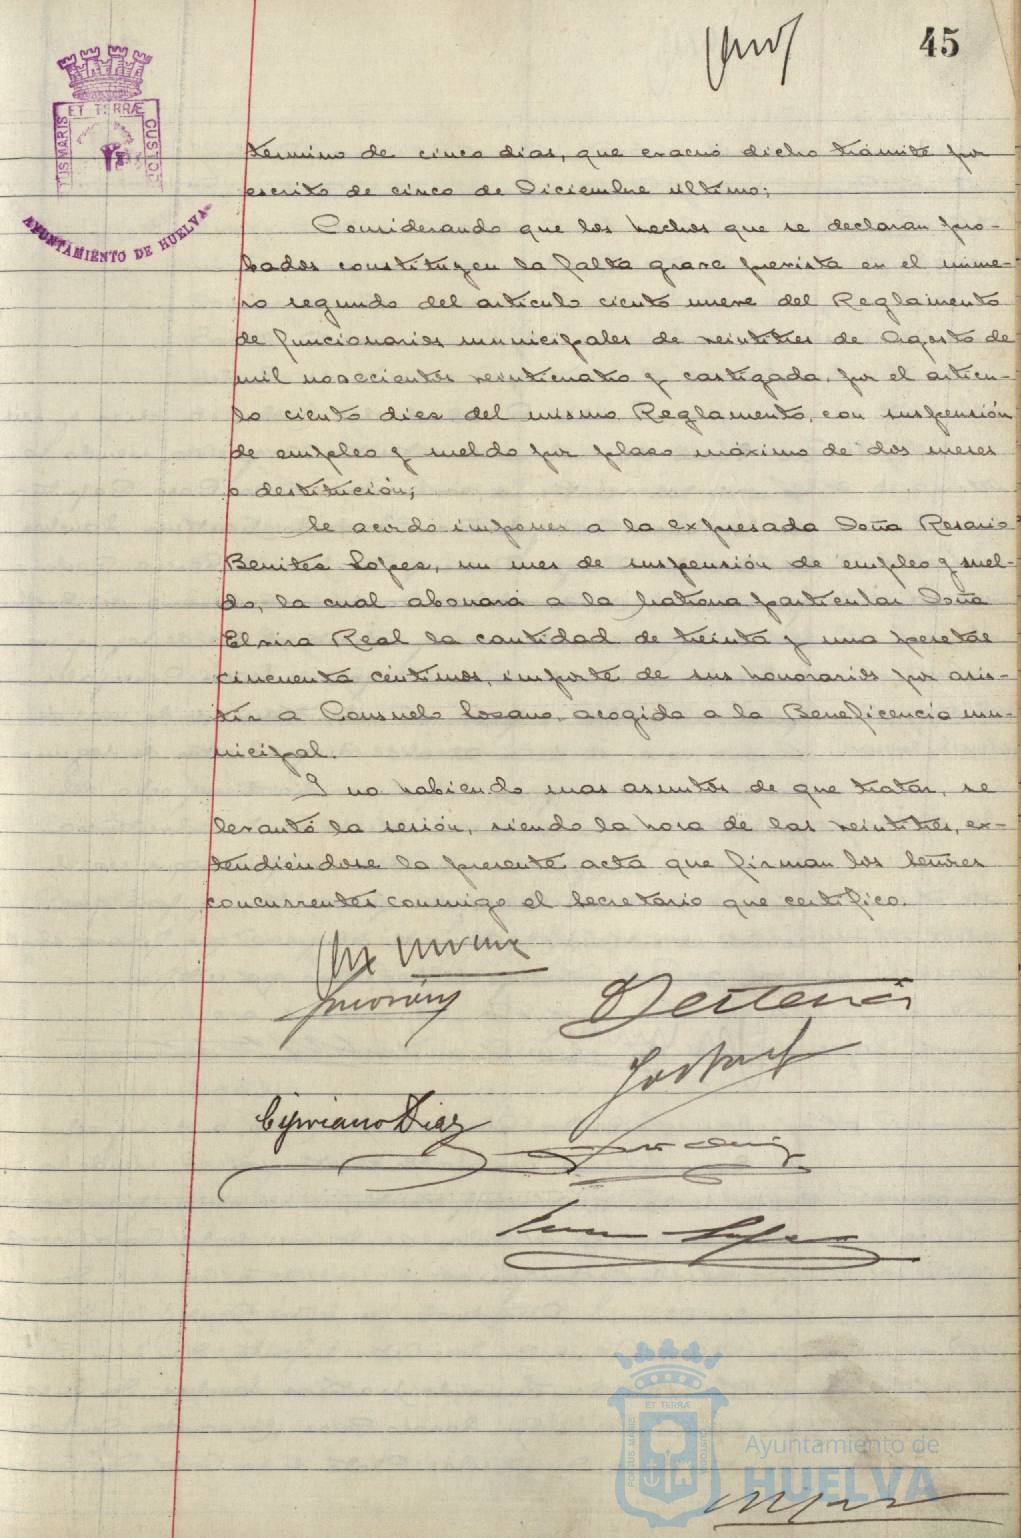 45
ET TERRÆ
TUS MARIS
CUSTOD
AYUNTAMIENTO DE HUELVA
termino de cinco dias, que evacuó dicho trámite por
escrito de cinco de Diciembre ultimo;
Considerando que los hechos que se declaran pro-
bados constituyen la falta grave prevista en el nume-
ro segundo del articulo ciento nueve del Reglamento
de funcionarios municipales de veintitres de Agosto de
mil novecientos veinticuatro y castigada, por el articu-
lo ciento diez del mismo Reglamento, con suspensión
de empleo y sueldo por plazo máximo de dos meses
o destitución;
Se acordo imponer a la expresada Doña Rosario
Benites Lopez, un mes de suspensión de empleo y suel-
do, la cual abonará a la matrona particular Doña
Elvira Real la cantidad de treinta y una pesetas
cincuenta céntimos, importe de sus honorarios por asis-
tir a Consuelo Lozano, acogida a la Beneficencia mu-
nicipal.
Y no habiendo mas asuntos de que tratar, se
levantó la sesión, siendo la hora de las veintitres, ex-
tendiéndose la presente acta que firman los Señores
concurrentes conmigo el Secretario que certifico.
Cipriano Diaz
ET TERRÆ
PORTUS MARIS
CUSTODIA
Ayuntamiento de
HUELVA